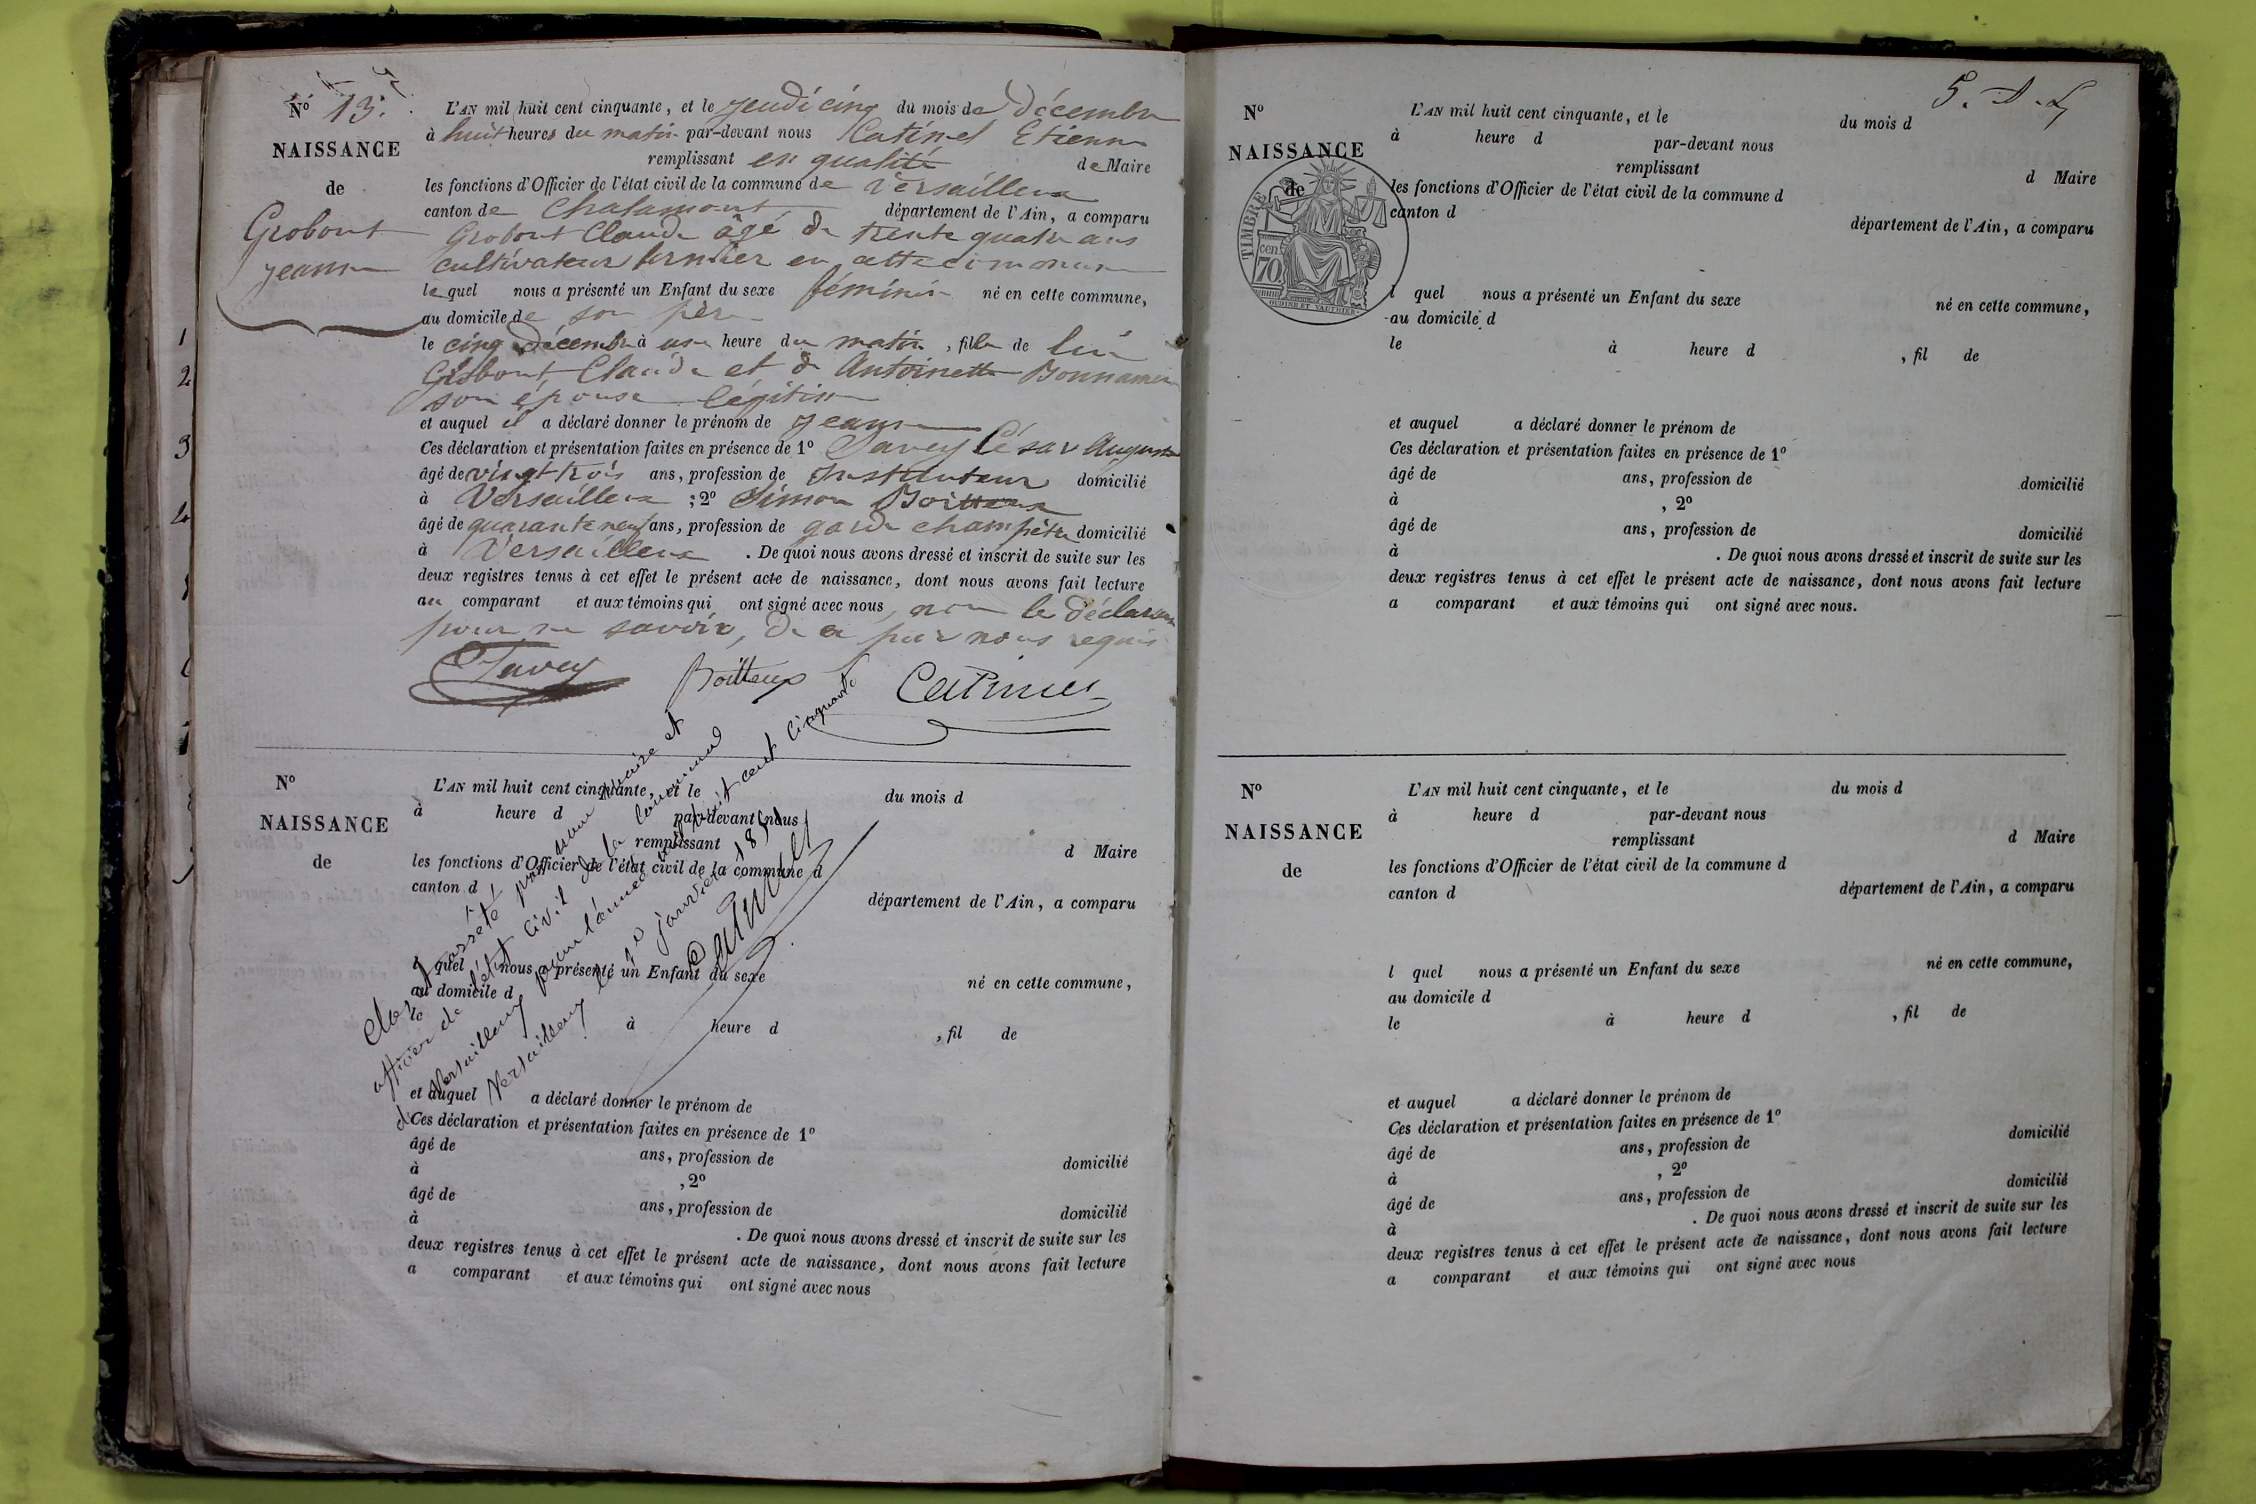 N° 13.
NAISSANCE
de
Grobout
Jeanne
L'AN mil huit cent cinquante, et le jeudi cinq du mois de décembre
à huit heures du matin par-devant nous Catinel Etienne
remplissant en qualité de Maire
les fonctions d'Officier de l'état civil de la commune de Versailleux
canton de Chalamont département de l'Ain, a comparu
Grobout Claude âgé de trente quatre ans
cultivateur fermier en cette commune
lequel nous a présenté un Enfant du sexe féminin né en cette commune,
au domicile de son père
le cinq décembre à une heure du matin, fille de lui
Grobout Claude et de Antoinette
son épouse légitime
et auquel il a déclaré donner le prénom de Jeanne
Ces déclaration et présentation faites en présence de 1° Savey César Auguste
âgé de vingt trois ans, profession de Instituteur domicilié
à Versailleux ; 2° Simon Boitteux
âgé de quarante neuf ans, profession de garde champêtre domicilié
à Versailleux . De quoi nous avons dressé et inscrit de suite sur les
deux registres tenus à cet effet le présent acte de naissance, dont nous avons fait lecture
au comparant et aux témoins qui ont signé avec nous, non le déclarant
pour ne savoir, de ce par nous requis
Savey Boitteux Catinel
N°
NAISSANCE
de
L'AN mil huit cent cinquante, et le du mois d
à heure d par-devant nous
remplissant d Maire
les fonctions d'Officier de l'état civil de la commune d
canton d département de l'Ain, a comparu
l quel nous a présenté un Enfant du sexe né en cette commune,
au domicile d
le à heure d , fil de
et auquel a déclaré donner le prénom de
Ces déclaration et présentation faites en présence de 1°
âgé de ans, profession de domicilié
à , 2°
âgé de ans, profession de domicilié
à . De quoi nous avons dressé et inscrit de suite sur les
deux registres tenus à cet effet le présent acte de naissance, dont nous avons fait lecture
a comparant et aux témoins qui ont signé avec nous
Clos & arrêté par nous maire et
officier de l'état civil de la commune
de Versailleux pour l'année mil huit cent cinquante
Versailleux le 1er janvier 1851
Catinel
5.
N°
NAISSANCE
de
TIMBRE
cen
70
OUDINÉ ET VAUTHIER
L'AN mil huit cent cinquante, et le du mois d
à heure d par-devant nous
remplissant d Maire
les fonctions d'Officier de l'état civil de la commune d
canton d département de l'Ain, a comparu
l quel nous a présenté un Enfant du sexe né en cette commune,
au domicile d
le à heure d , fil de
et auquel a déclaré donner le prénom de
Ces déclaration et présentation faites en présence de 1°
âgé de ans, profession de domicilié
à , 2°
âgé de ans, profession de domicilié
à . De quoi nous avons dressé et inscrit de suite sur les
deux registres tenus à cet effet le présent acte de naissance, dont nous avons fait lecture
a comparant et aux témoins qui ont signé avec nous.
N°
NAISSANCE
de
L'AN mil huit cent cinquante, et le du mois d
à heure d par-devant nous
remplissant d Maire
les fonctions d'Officier de l'état civil de la commune d
canton d département de l'Ain, a comparu
l quel nous a présenté un Enfant du sexe né en cette commune,
au domicile d
le à heure d , fil de
et auquel a déclaré donner le prénom de
Ces déclaration et présentation faites en présence de 1°
âgé de ans, profession de domicilié
à , 2°
âgé de ans, profession de domicilié
à . De quoi nous avons dressé et inscrit de suite sur les
deux registres tenus à cet effet le présent acte de naissance, dont nous avons fait lecture
a comparant et aux témoins qui ont signé avec nous